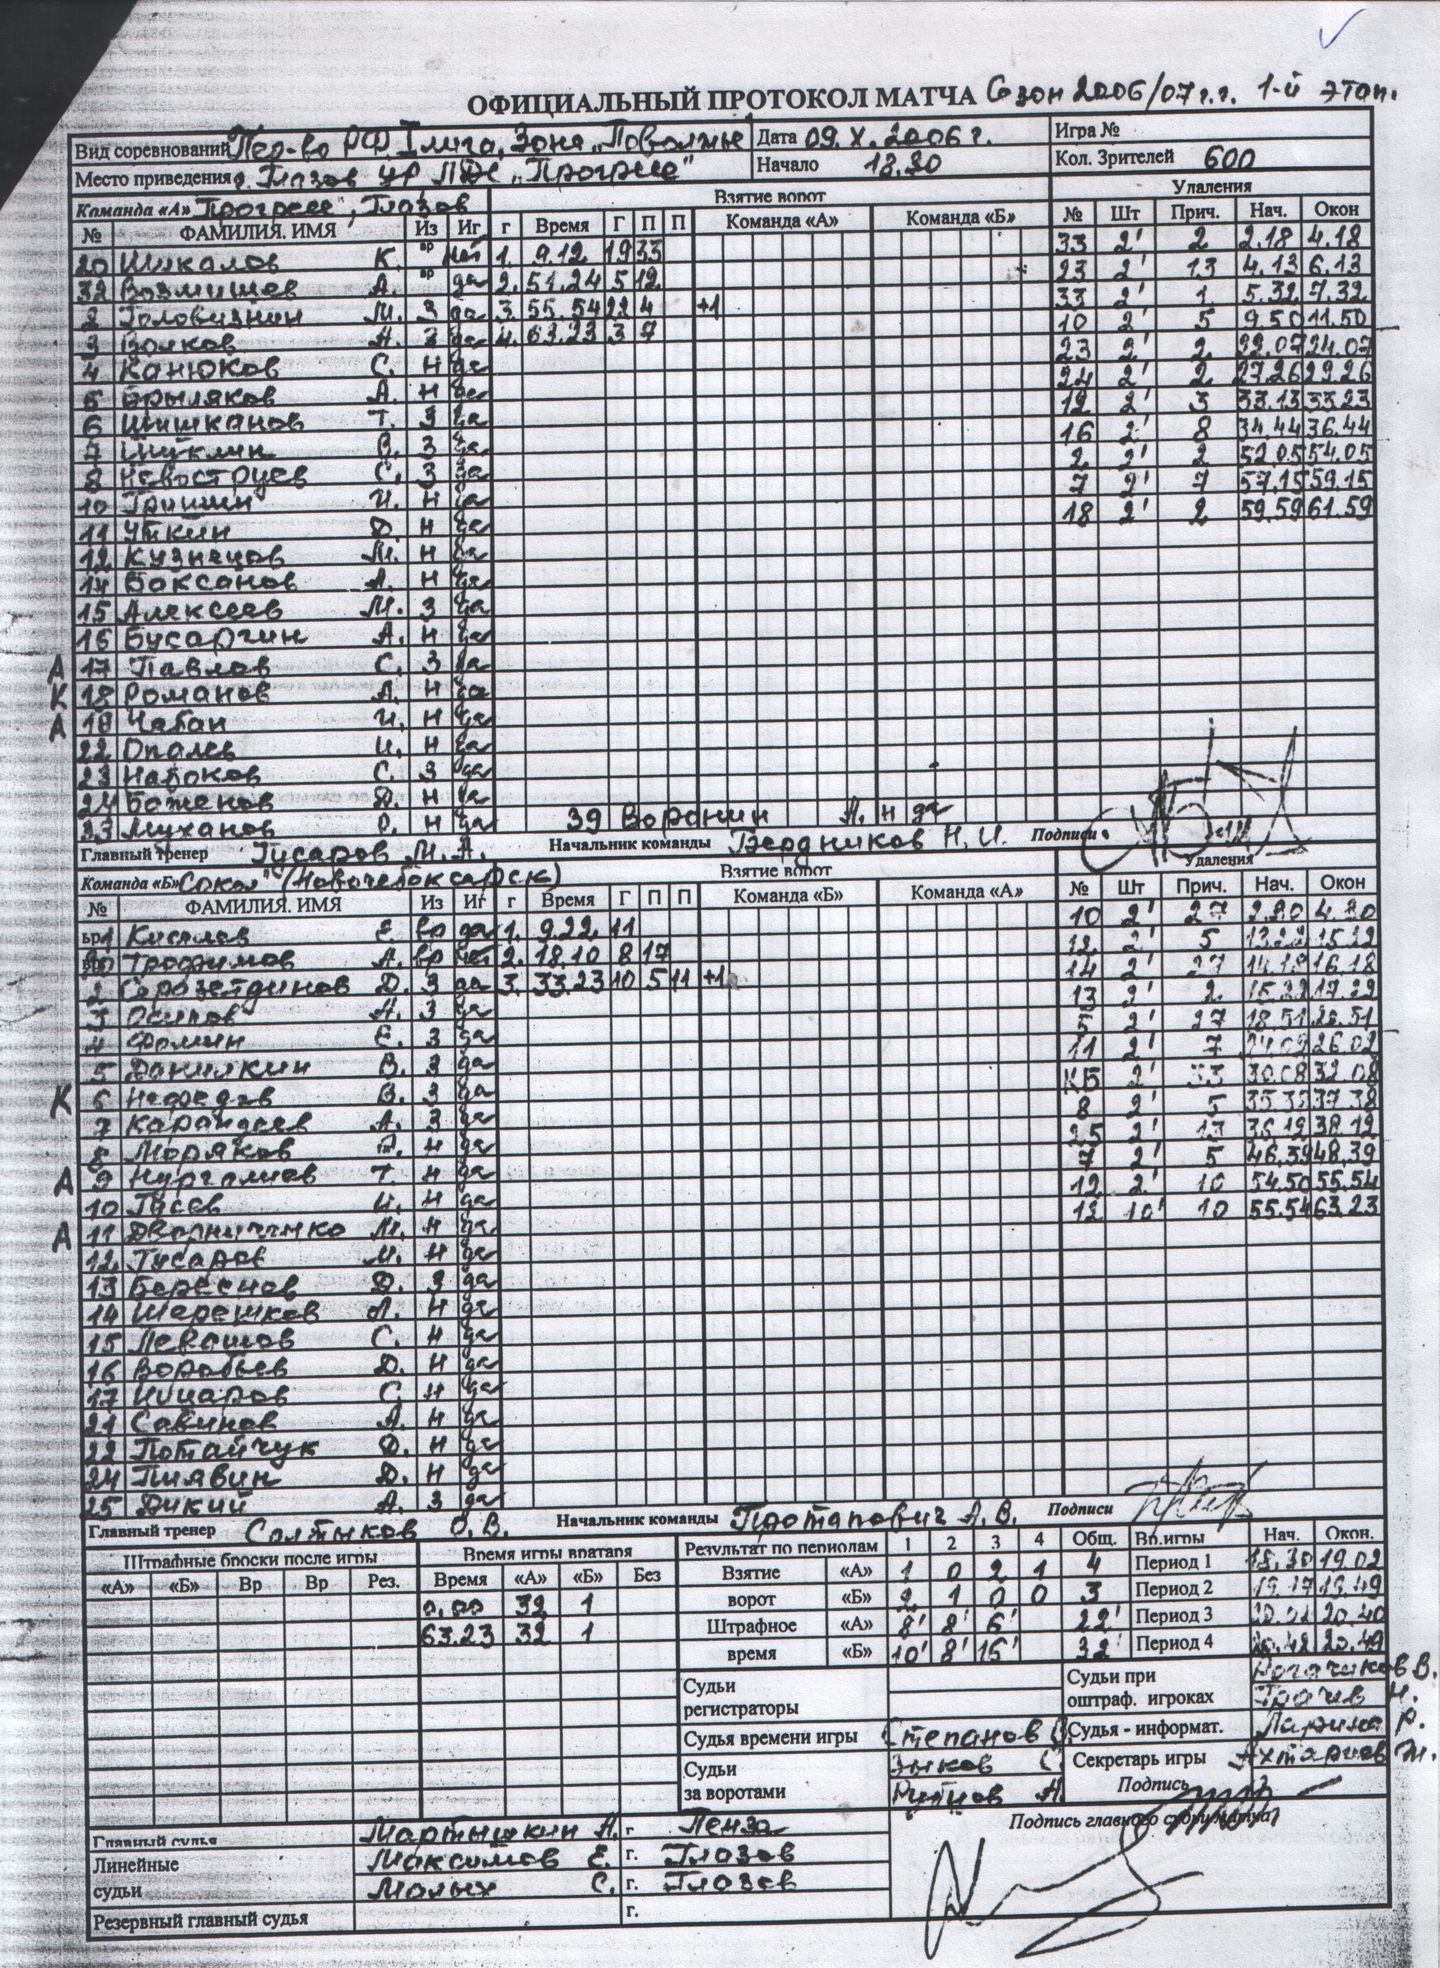 ОФИЦИАЛЬНЫЙ ПРОТОКОЛ МАТЧА Сезон 2006/07 г.г. 1-й этап.
Вид соревнований Пер-во РФ I лига, Зона "Поволжье Дата 09. X. 2006 г. Игра №
Место приведения г. Глазов УР ЛДС "Прогресс" Начало 18.30 Кол. Зрителей 600
Команда «А» "Прогресс", Глазов Взятие ворот Удаления
№ ФАМИЛИЯ. ИМЯ Из Иг г Время Г П П Команда «А» Команда «Б» № Шт Прич. Нач. Окон
20 Шикалов К. вр нет 1. 9.12 19 33 33 2' 2 2.18 4.18
32 Возмищев А. вр да 2. 51.24 5 12 23 2' 13 4.13 6.13
2 Головизнин М. З да 3. 55.54 22 4 +1 33 2' 1 5.32 7.32
3 Волков А. З да 4. 63.23 3 7 10 2' 5 9.50 11.50
4 Канюков С. Н да 23 2' 2 22.07 24.07
5 Брыляков А. Н да 24 2' 2 27.26 29.26
6 Шишканов Т. З да 12 2' 3 33.13 33.23
7 Шуклин В. З да 16 2' 8 34.44 36.44
8 Невоструев С. З да 2 2' 2 52.05 54.05
10 Гришин И. Н да 7 2' 7 57.15 59.15
11 Уткин Д. Н да 18 2' 2 59.59 61.59
12 Кузнецов М. Н да
14 Баксанов А. Н да
15 Алексеев М. З да
16 Бусаргин А. Н да
А 17 Павлов С. З да
К 18 Романов А. Н да
А 19 Чабан И. Н да
22 Опалев И. Н да
23 Набоков С. З да
24 Баженов Д. Н да
33 Муханов О. Н да 39 Воранин А. Н да
Главный тренер Гусаров М. А. Начальник команды Бердников Н. И. Подписи
Команда «Б» "Сокол" (Новочебоксарск) Взятие ворот Удаления
№ ФАМИЛИЯ. ИМЯ Из Иг г Время Г П П Команда «Б» Команда «А» № Шт Прич. Нач. Окон
вр 1 Киселев Е. вр да 1. 9.22 11 10 2' 27 2.20 4.20
20 Трофимов А. вр нет 2. 18.10 8 17 12 2' 5 13.22 15.22
2 Соразетдинов Д. З да 3. 33.23 10 5 11 +1 14 2' 27 14.18 16.18
3 Осипов А. З да 13 2' 2 15.22 17.22
4 Фомин Е. З да 5 2' 27 18.51 20.51
5 Данилкин В. З да 11 2' 7 24.02 26.02
К 6 Нефедов В. З да КБ 2' 33 30.08 32.08
7 Карандеев А. З да 8 2' 5 35.38 37.38
8 Моряков Н да 25 2' 13 36.12 38.12
А 9 Нургалиев Т. Н да 7 2' 5 46.39 48.39
10 Гусев И. Н да 12 2' 10 54.50 55.54
А 11 Дворниченко М. Н да 12 10' 10 55.54 63.23
12 Гусаров М. Н да
13 Береснов Д. З да
14 Шерешков А. Н да
15 Левашов С. Н да
16 Воробьев Д. Н да
17 С. Н да
21 Савинов А. Н да
22 Потайчук Д. Н да
24 Пиявин Д. Н да
25 Дикий А. З да
Главный тренер Салтыков О. В. Начальник команды Протапович А. В. Подписи
Штрафные броски после игры Время игры вратаря Результат по периодам 1 2 3 4 Общ. Вр.игры Нач. Окон.
«А» «Б» Вр Вр Рез. Время «А» «Б» Без Взятие «А» 1 0 2 1 4 Период 1 18.30 19.02
0.00 32 1 ворот «Б» 2 1 0 0 3 Период 2 19.17 19.49
63.23 32 1 Штрафное «А» 8' 8' 6' 22' Период 3 20.40
время «Б» 10' 8' 15' 32' Период 4 20.42 20.49
Судьи регистраторы Судьи при оштраф. игроках Рогачиков В.
Грачев Н.
Судья времени игры Степанов Судья - информат. Ларина Р.
Судьи за воротами Зыков С. Секретарь игры Ахтариев Ж.
Рутнов А. Подпись
Главный судья Мартышкин А. г. Пенза Подпись главного судьи матча
Линейные судьи Максимов Е. г. Глазов
Малых С. г. Глазов
Резервный главный судья г.